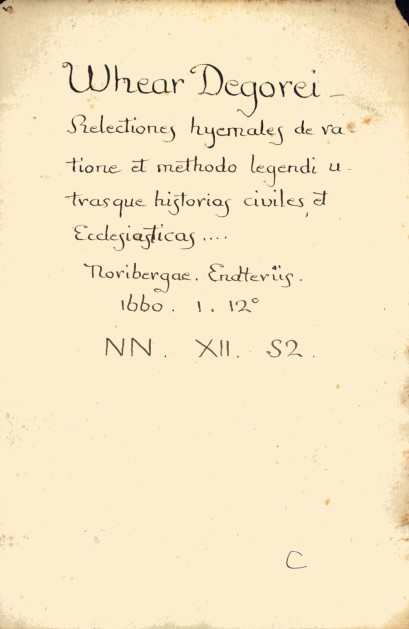 Whear Degorei –
Relectiones hyemales de ra-
tione et methodo legendi u-
trasque historias civiles, et
Ecclesiasticas ....
Noribergae. Endterüs.
1660. 1. 12°
NN. XII. S2.
C